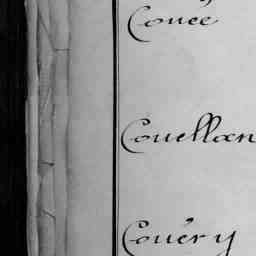 Couee
Couellan
Couëry